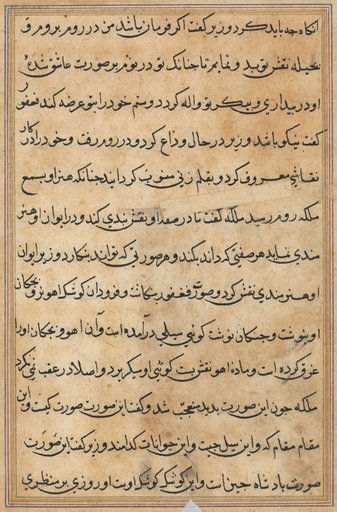 آنکاه جه باید کرد وزیر کفت اکر فرمان باشد من در روم بروم و
بحیله نقش تو بید و نمایم تا جنانک تو در نوم بر صورت عاشق شدهٔ
او در بیداری و بیکر تو واله کردد و ستم خود را بتو عرضه کند فغفور
کفت نیکو باشد وزیر در حال وداع کرد و در روم رفت و خود را در کار
نقاشی معروف کرد و بقلم زنی منسوب کردانید جنانکه هنر او بسمع
ملکه روم رسید ملکه کفت تا در صفه او نقش بندی کند و در ایوان او هنر
مندی نماید هر صفتی که داند بکند و هر صورتی که تواند بنکارد وزیر ایوان
او هنرمندی نقش کرد و صورت فغفور بنکاشت و فرود آن کوشک آهو نر و بجکان
او بنوشت و جنان نوشت کوئی سیلی در آمده است و آن آهو و بجکان او را
غرق کرده است و ماده آهو نقش بست کوئی او میکریزد و اصلا در عقب نمی نکرد
ملکه جون این صورت بدید متعجب شد و کفت این صورت صورت کیست و این
مقام مقام که و این سیل جیست و این حیوانات کدامند وزیر کفت این صورت
صورت بادشاه جین است و این کوشک کوشک اوست او روزی بر منظری